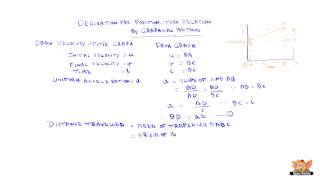 DERIVATION FOR POSITION-TIME RELATION
BY GRAPHICAL METHOD
DRAW VELOCITY-TIME GRAPH
FROM GRAPH
INITIAL VELOCITY = u
u = OA
FINAL VELOCITY = v
v = OE
TIME = t
t = OC
UNIFORM ACCELERATION = a
a = SLOPE OF LINE AB
a = BD/AD = BD/OC ∵ AD = OC
a = BD/t ∵ OC = t
∴ BD = at
DISTANCE TRAVELLED = AREA OF TRAPEZIUM OABC
= AREA OF